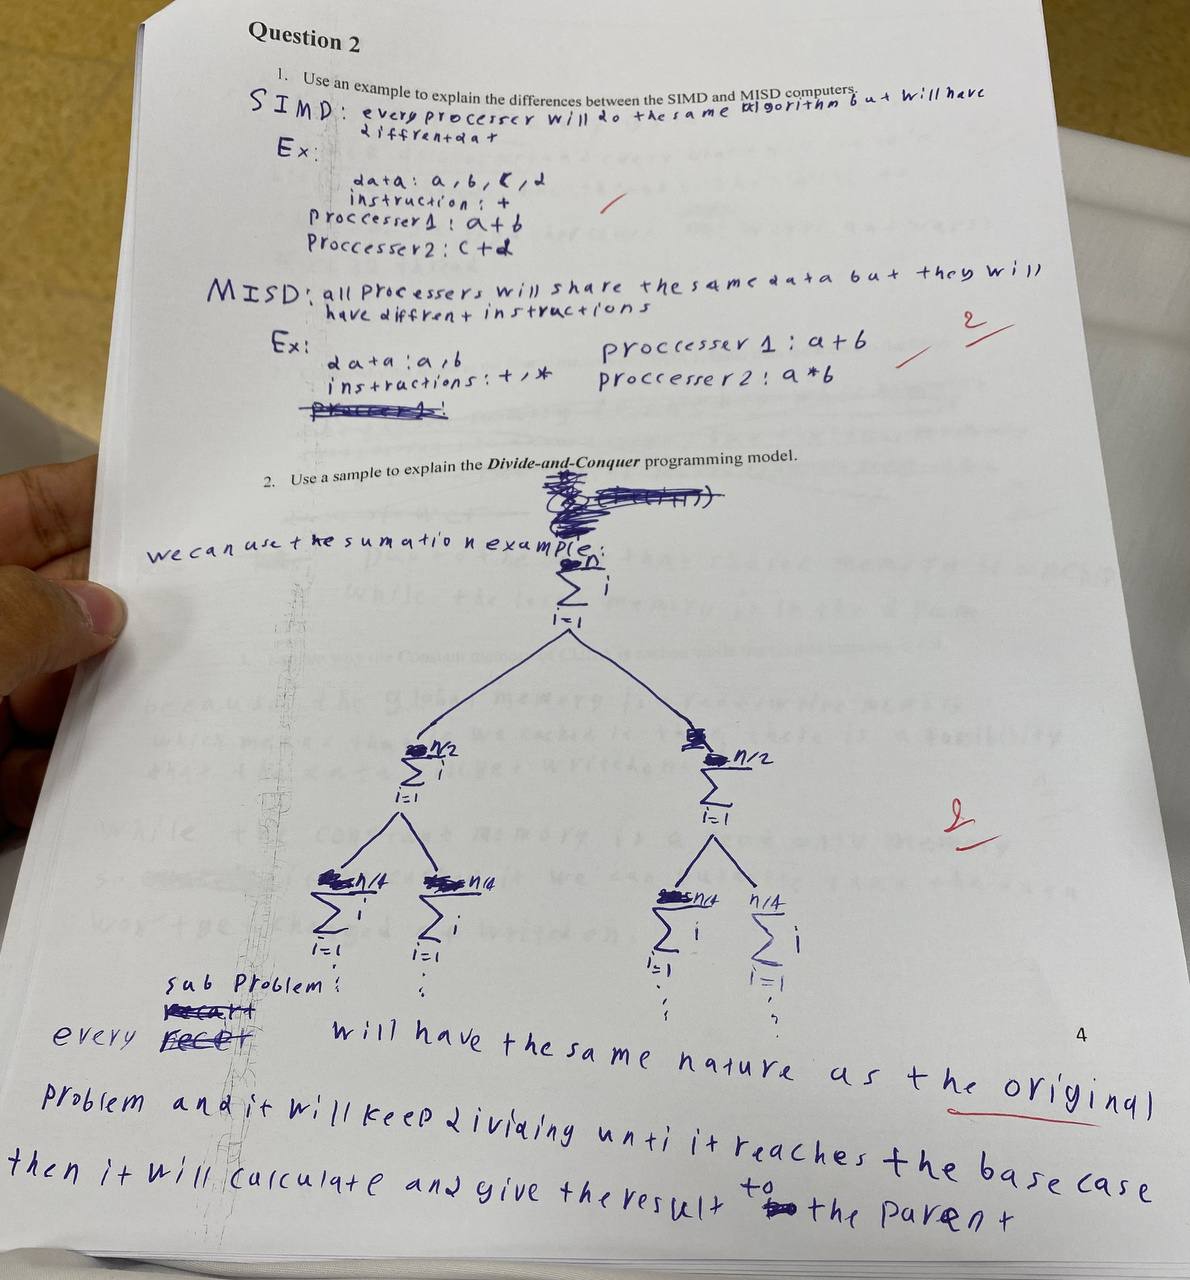 Question 2
1. Use an example to explain the differences between the SIMD and MISD computers.
SIMD: every processer will do the same algorithm but will have
diffrent dat
Ex:
data: a, b, c, d
instruction: +
proccesser1: a+b
Proccesser2: c+d
MISD: all processers will share the same data but they will
have diffrent instructions
Ex:
data: a, b
instractions: +, *
proccesser 1: a+b
proccesser 2: a*b
2
2. Use a sample to explain the Divide-and-Conquer programming model.
we can use the sumation example:
n
∑ i
i=1
n/2
∑ i
i=1
n/2
∑
i=1
n/4
∑ i
i=1
n/4
∑ i
i=1
n/4
∑ i
i=1
n/4
∑ i
i=1
2
sub Problem:
every will have the same nature as the original
4
problem and it will keep dividing unti it reaches the base case
then it will calculate and give the result to the parent